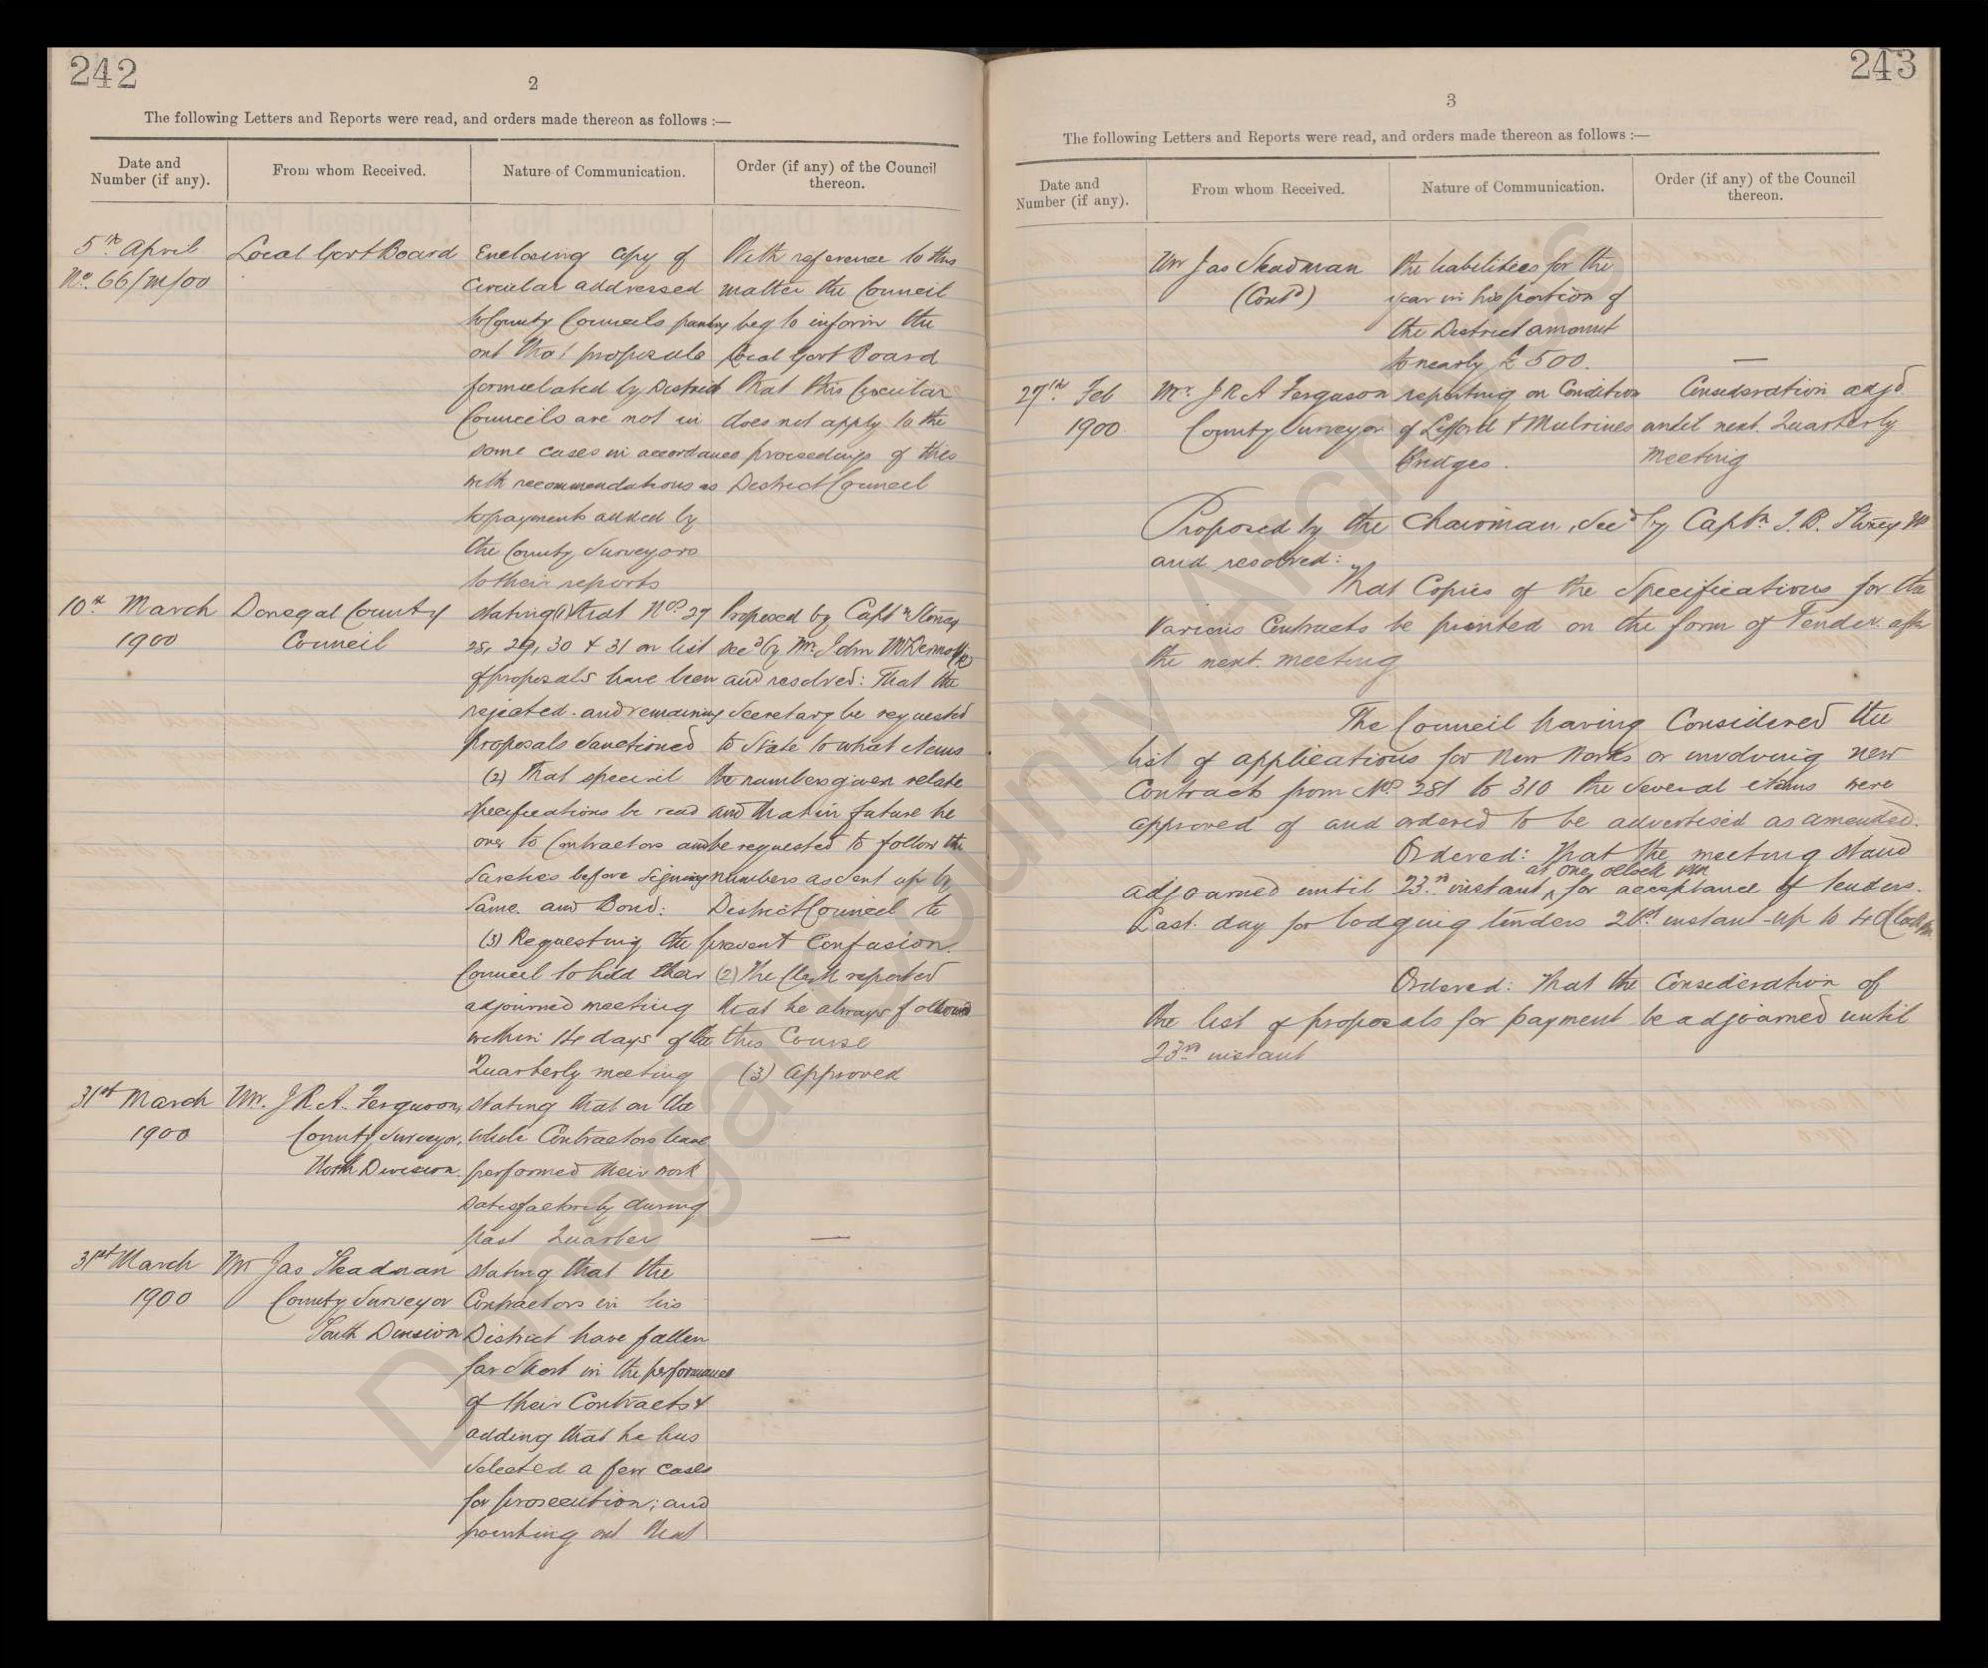 242
2
The following Letters and Reports were read, and orders made thereon as follows :—
Date and
Number (if any).
From whom Received.
Nature of Communication.
Order (if any) of the Council
thereon.
5th April
No. 66/M/00
Local Govt Board
Enclosing copy of
Circular addressed
to County Councils pointing
out that proposals
formulated by District
Councils are not in
some cases in accordance
with recommendations as
to payments added by
the County Surveyors
to their reports
With reference to this
matter the Council
beg to inform the
Local Govt Board
that this Circular
does not apply to the
proceedings of this
District Council
10th March
1900
Donegal County
Council
Stating (1) that Nos 27
28, 29, 30 & 31 on list
of proposals have been
rejected and remaining
proposals sanctioned
(2) That special
specifications be read
over to Contractors and
Sureties before signing
same and Bond:
(3) Requesting the
Council to hold their
adjourned meeting
within 14 days of the
Quarterly meeting
Proposed by Captn Stoney
secd by Mr John McDermott
and resolved: That the
Secretary be requested
to state to what items
the numbers given relate
and that in future he
be requested to follow the
numbers as sent up by
District Council to
prevent confusion.
(2) The Clerk reported
that he always followed
this Course
(3) Approved
31st March
1900
Mr. J. R. A. Ferguson,
County Surveyor,
North Division.
Stating that on the
whole Contractors have
performed their work
satisfactorily during
past Quarter
—
31st March
1900
Mr Jas Steadman
County Surveyor
South Division
Stating that the
Contractors in his
District have fallen
far short in the performance
of their Contracts &
adding that he has
selected a few cases
for prosecution; and
pointing out that
243
3
The following Letters and Reports were read, and orders made thereon as follows :—
Date and
Number (if any).
From whom Received.
Nature of Communication.
Order (if any) of the Council
thereon.
Mr Jas Steadman
(Contd)
the liabilities for the
year in his portion of
the District amount
to nearly £500.
—
27th Feb
1900
Mr. J R A Ferguson
County Surveyor
reporting on Condition
of Lifford & Mulrines
Bridges.
Consideration adjd
until next Quarterly
Meeting
Proposed by the Chairman, Secd by Captn J. B. Stoney
and resolved:
That Copies of the Specifications for the
Various Contracts be printed on the form of Tender after
the next meeting
The Council having Considered the
list of applications for New Works or involving new
Contracts from Nos 281 to 310 the several items were
approved of and ordered to be advertised as amended.
Ordered: That the meeting stand
at one oclock pm
adjourned until 23rd instant ^ for acceptance of tenders.
Last day for lodging tenders 21st instant up to 4 Oclock pm
Ordered: That the Consideration of
the list of proposals for payment be adjourned until
23rd instant
Donegal County Archives